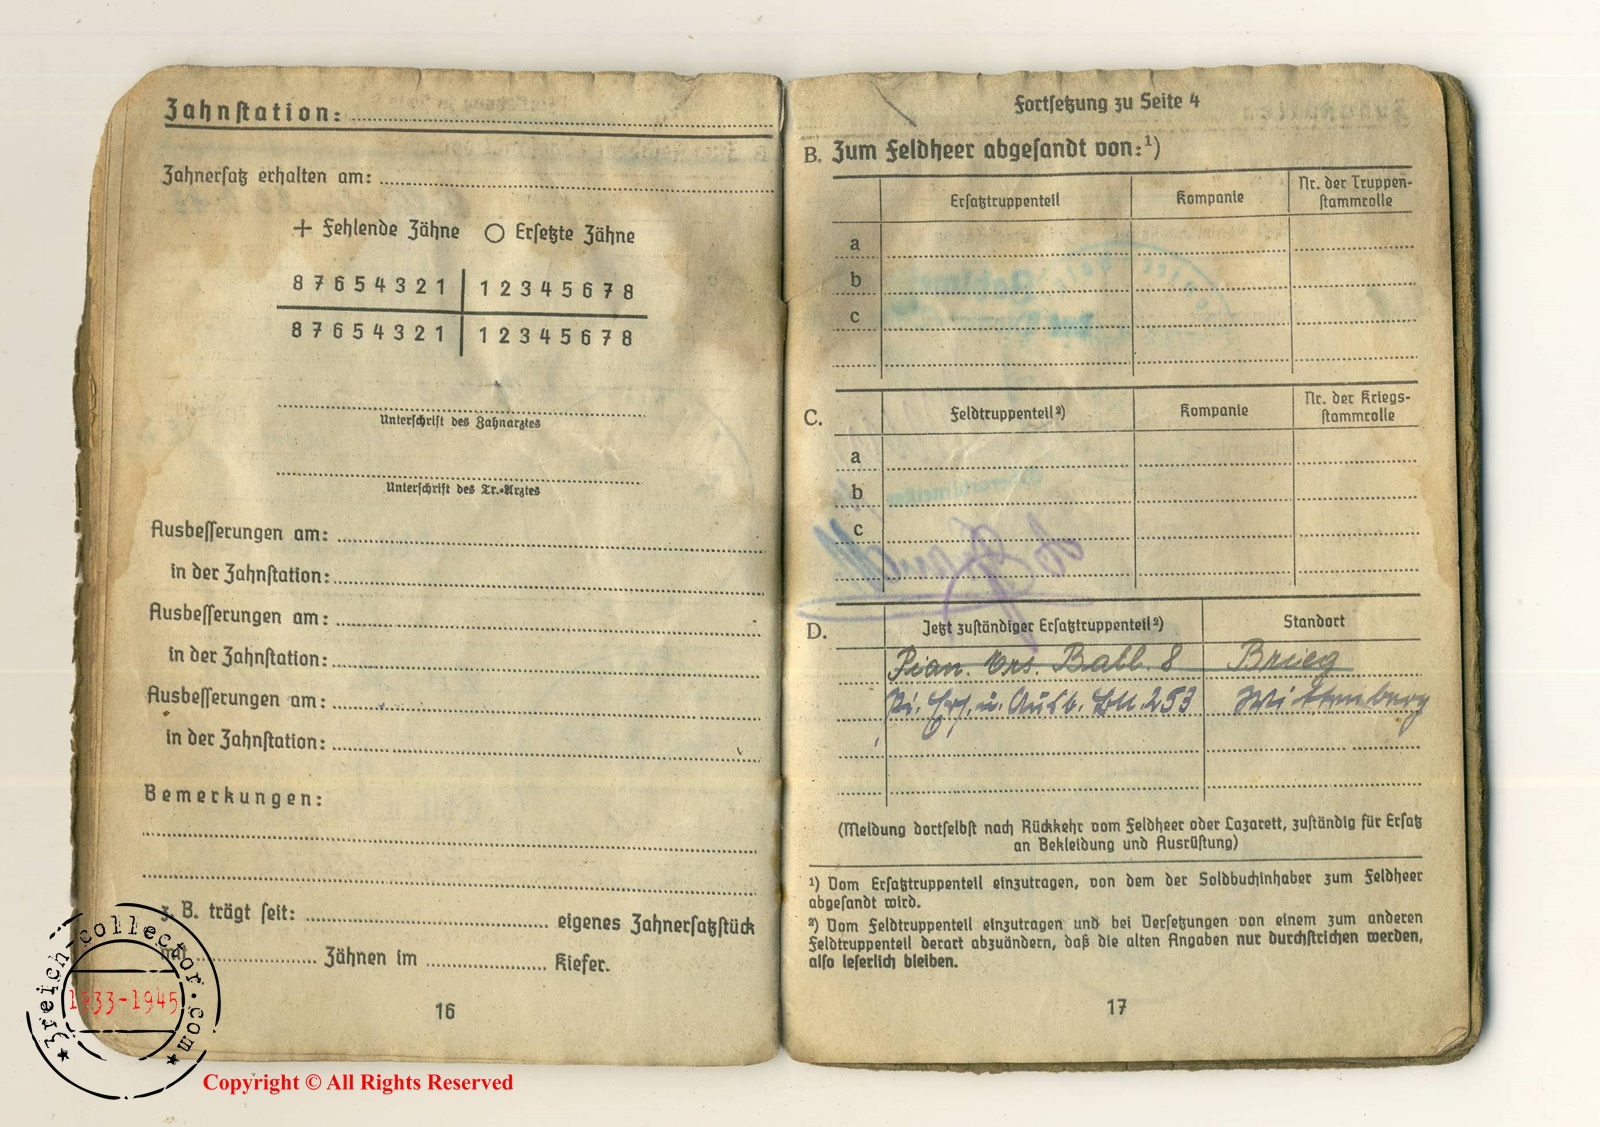 Zahnstation:
Zahnersatz erhalten am:
+ Fehlende Zähne ○ Ersetzte Zähne
8 7 6 5 4 3 2 1 1 2 3 4 5 6 7 8
8 7 6 5 4 3 2 1 1 2 3 4 5 6 7 8
Unterschrift des Zahnarztes
Unterschrift des Tr.-Arztes
Ausbesserungen am:
in der Zahnstation:
Ausbesserungen am:
in der Zahnstation:
Ausbesserungen am:
in der Zahnstation:
Bemerkungen:
z. B. trägt seit: eigenes Zahnersatzstück
mit Zähnen im Kiefer.
16
Fortsetzung zu Seite 4
B. Zum Feldheer abgesandt von:¹)
Ersatztruppenteil Kompanie Nr. der Truppen-
stammrolle
a
b
c
C. Feldtruppenteil²) Kompanie Nr. der Kriegs-
stammrolle
a
b
c
D. Jetzt zuständiger Ersatztruppenteil²) Standort
Pion. Ers. Batl. 8 Brieg
Pi. Ers. u. Ausb. Btl. 253 Wittenberg
(Meldung dortselbst nach Rückkehr vom Feldheer oder Lazarett, zuständig für Ersatz
an Bekleidung und Ausrüstung)
¹) Vom Ersatztruppenteil einzutragen, von dem der Soldbuchinhaber zum Feldheer
abgesandt wird.
²) Vom Feldtruppenteil einzutragen und bei Versetzungen von einem zum anderen
Feldtruppenteil derart abzuändern, daß die alten Angaben nur durchstrichen werden,
also leserlich bleiben.
17
3reich-collector.com
1933-1945
Copyright © All Rights Reserved